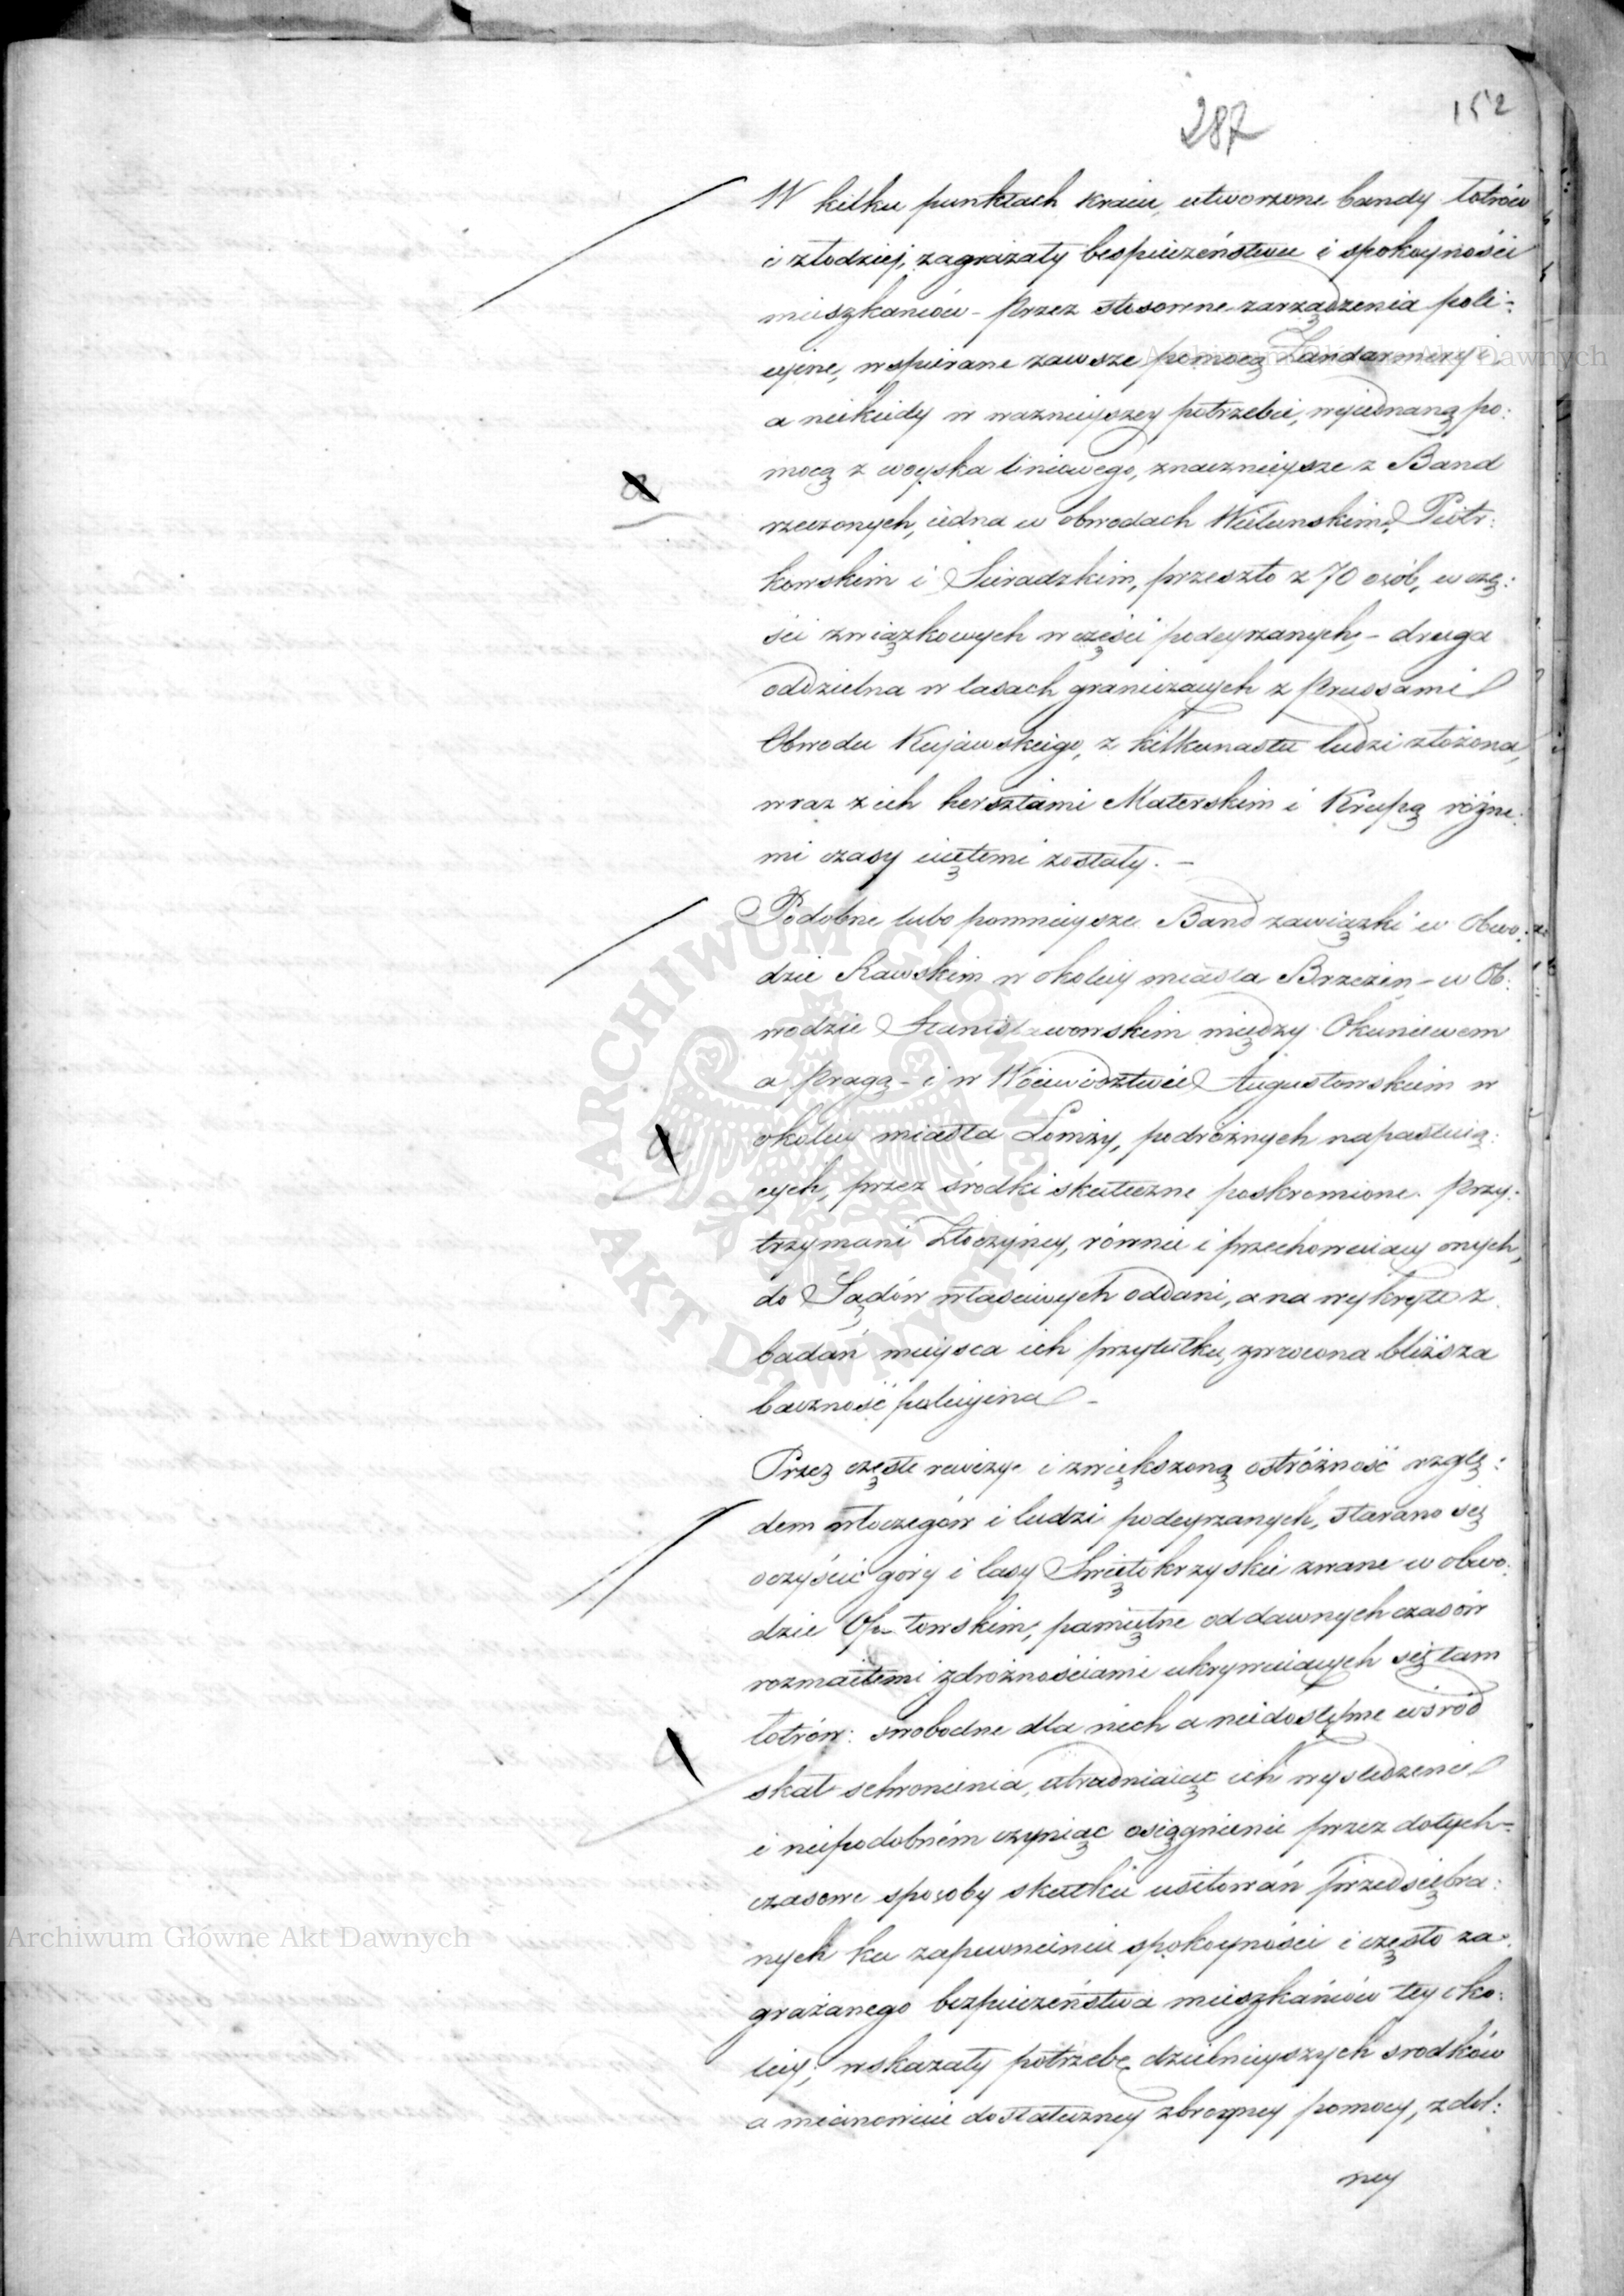 287
152
W kilku punktach kraiu, utworzone bandy łotrów
i złodziej, zagrażały bespieczeństwu i spokoyności
mieszkańców - Przez stosowne zarządzenia poli:
cyine, wspierane zawsze pomocą Żandarmeryi
a niekiedy w ważnieyszey potrzebie, wyiednaną po:
mocą z woyska liniowego, znacznieysze z Band
rzeczonych, iedna w obwodach Wieluńskim, Piotr:
kowskim i Sieradzkim, przeszło z 70 osób, w czę:
ści związkowych w części podeyrzanych, - druga
oddzielna w lasach granicznych z Prussami
Obwodu Kujawskiego, z kilkunastu ludzi złożona,
wraz z ich hersztami Materskim i Krupą różne:
mi czasy uiętemi zostały. -
Podobne lubo pomnieysze Band zawiązki w Obwo:
dzie Rawskim w okolicy miasta Brzezin - w Ob:
wodzie Stanisławowskim między Okuniewem
a Pragą - i w Woiewództwie Augustowskiem w
okolicy miasta Łomży, podróżnych napastuią:
cych, przez środki skuteczne poskromione. Przy:
trzymani Złoczyńcy, równie i przechowuiący onych,
do Sądów właściwych oddani, a na wykryte z
badań mieysca ich przytułku, zwrócona bliższa
baczność policyina -
Przez częste rewizye i zwiększoną ostróżność wzglę:
dem włóczęgów i ludzi podeyrzanych, starano się
oczyścić góry i lasy Świętokrzyskie zwane w obwo:
dzie Opatowskim, pamiętne od dawnych czasów
rozmaitemi zdrożnościami ukrywaiących się tam
łotrów: swobodne dla nich a niedostępne wśród
skał schronienia, utrudniaiąc ich wyśledzenie
i niepodobném czyniąc osiągnienie przez dotych=
czasowe sposoby skutku usiłowań przedsiębra:
nych ku zapewnieniu spokoyności i często za:
grażanego bezpieczeństwa mieszkańców tey oko:
licy; wskazały potrzebę dzielnieyszych srodków
a mianowicie dostateczney zbroyney pomocy, zdol:
ney
Archiwum Główne Akt Dawnych
Archiwum Główne Akt Dawnych
ARCHIWUM GŁÓWNE · AKT DAWNYCH ·